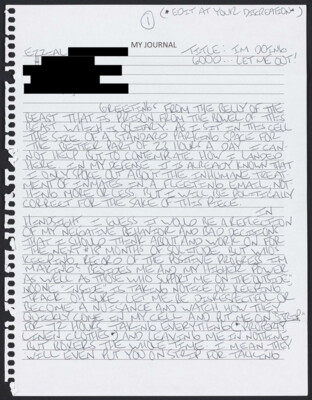 (*EDIT AT YOUR DISCRETION*)
1
MY JOURNAL
EZZIAL
TITLE: I'M DOING
GOOD... LET ME OUT!
GREETINGS FROM THE BELLY OF THE
BEAST THAT IS PRISON FROM THE BOWEL OF THIS
BEAST WHICH IS SOLITARY. AS I SIT IN THIS CELL
THE SIZE OF A STANDARD PARKING SPACE FOR
THE BETTER PART OF 22 HOURS A DAY I CAN
NOT HELP BUT TO CONTEMPLATE HOW I LANDED
HERE. IN MY DEFENSE I ALREADY KNOW THAT
I ONLY SPOKE OUT ABOUT THE INHUMANE TREAT-
MENT OF INMATES IN A FLEETING EMAIL, NOT
NO MORE OR LESS. BUT I WILL BE POLITICALLY
CORRECT FOR THE SAKE OF THIS PIECE.
IN
HINDSIGHT I GUESS IT WOULD BE A REFLECTION
OF MY NEGATIVE BEHAVIOR AND BAD DECISIONS
THAT I SHOULD THINK ABOUT AND WORK ON FOR
THE NEXT 18 MONTHS OF SOLITUDE. BUT WHO'S
KEEPING RECORD OF THE POSITIVE PROGRESS I'M
MAKING? BESIDES ME AND MY HIGHER POWER
AS WELL AS THOSE WHO SUPPORT ME ON THE OUTSIDE.
NOONE INSIDE IS TAKING NOTICE OR KEEPING
TRACK. OH SURE LET ME BE DISRESPECTFUL OR
BECOME A NUISANCE AND WATCH HOW THEY
QUICKLY COME IN MY CELL AND PUT ME ON "STRIP"
FOR 72 HOURS TAKING EVERYTHING (*PROPERTY,
LINEN, CLOTHES*) AND LEAVING ME IN NOTHING
BUT BOXERS THE WHOLE TIME. I MEAN THEY
WILL EVEN PUT YOU ON STRIP FOR TALKING